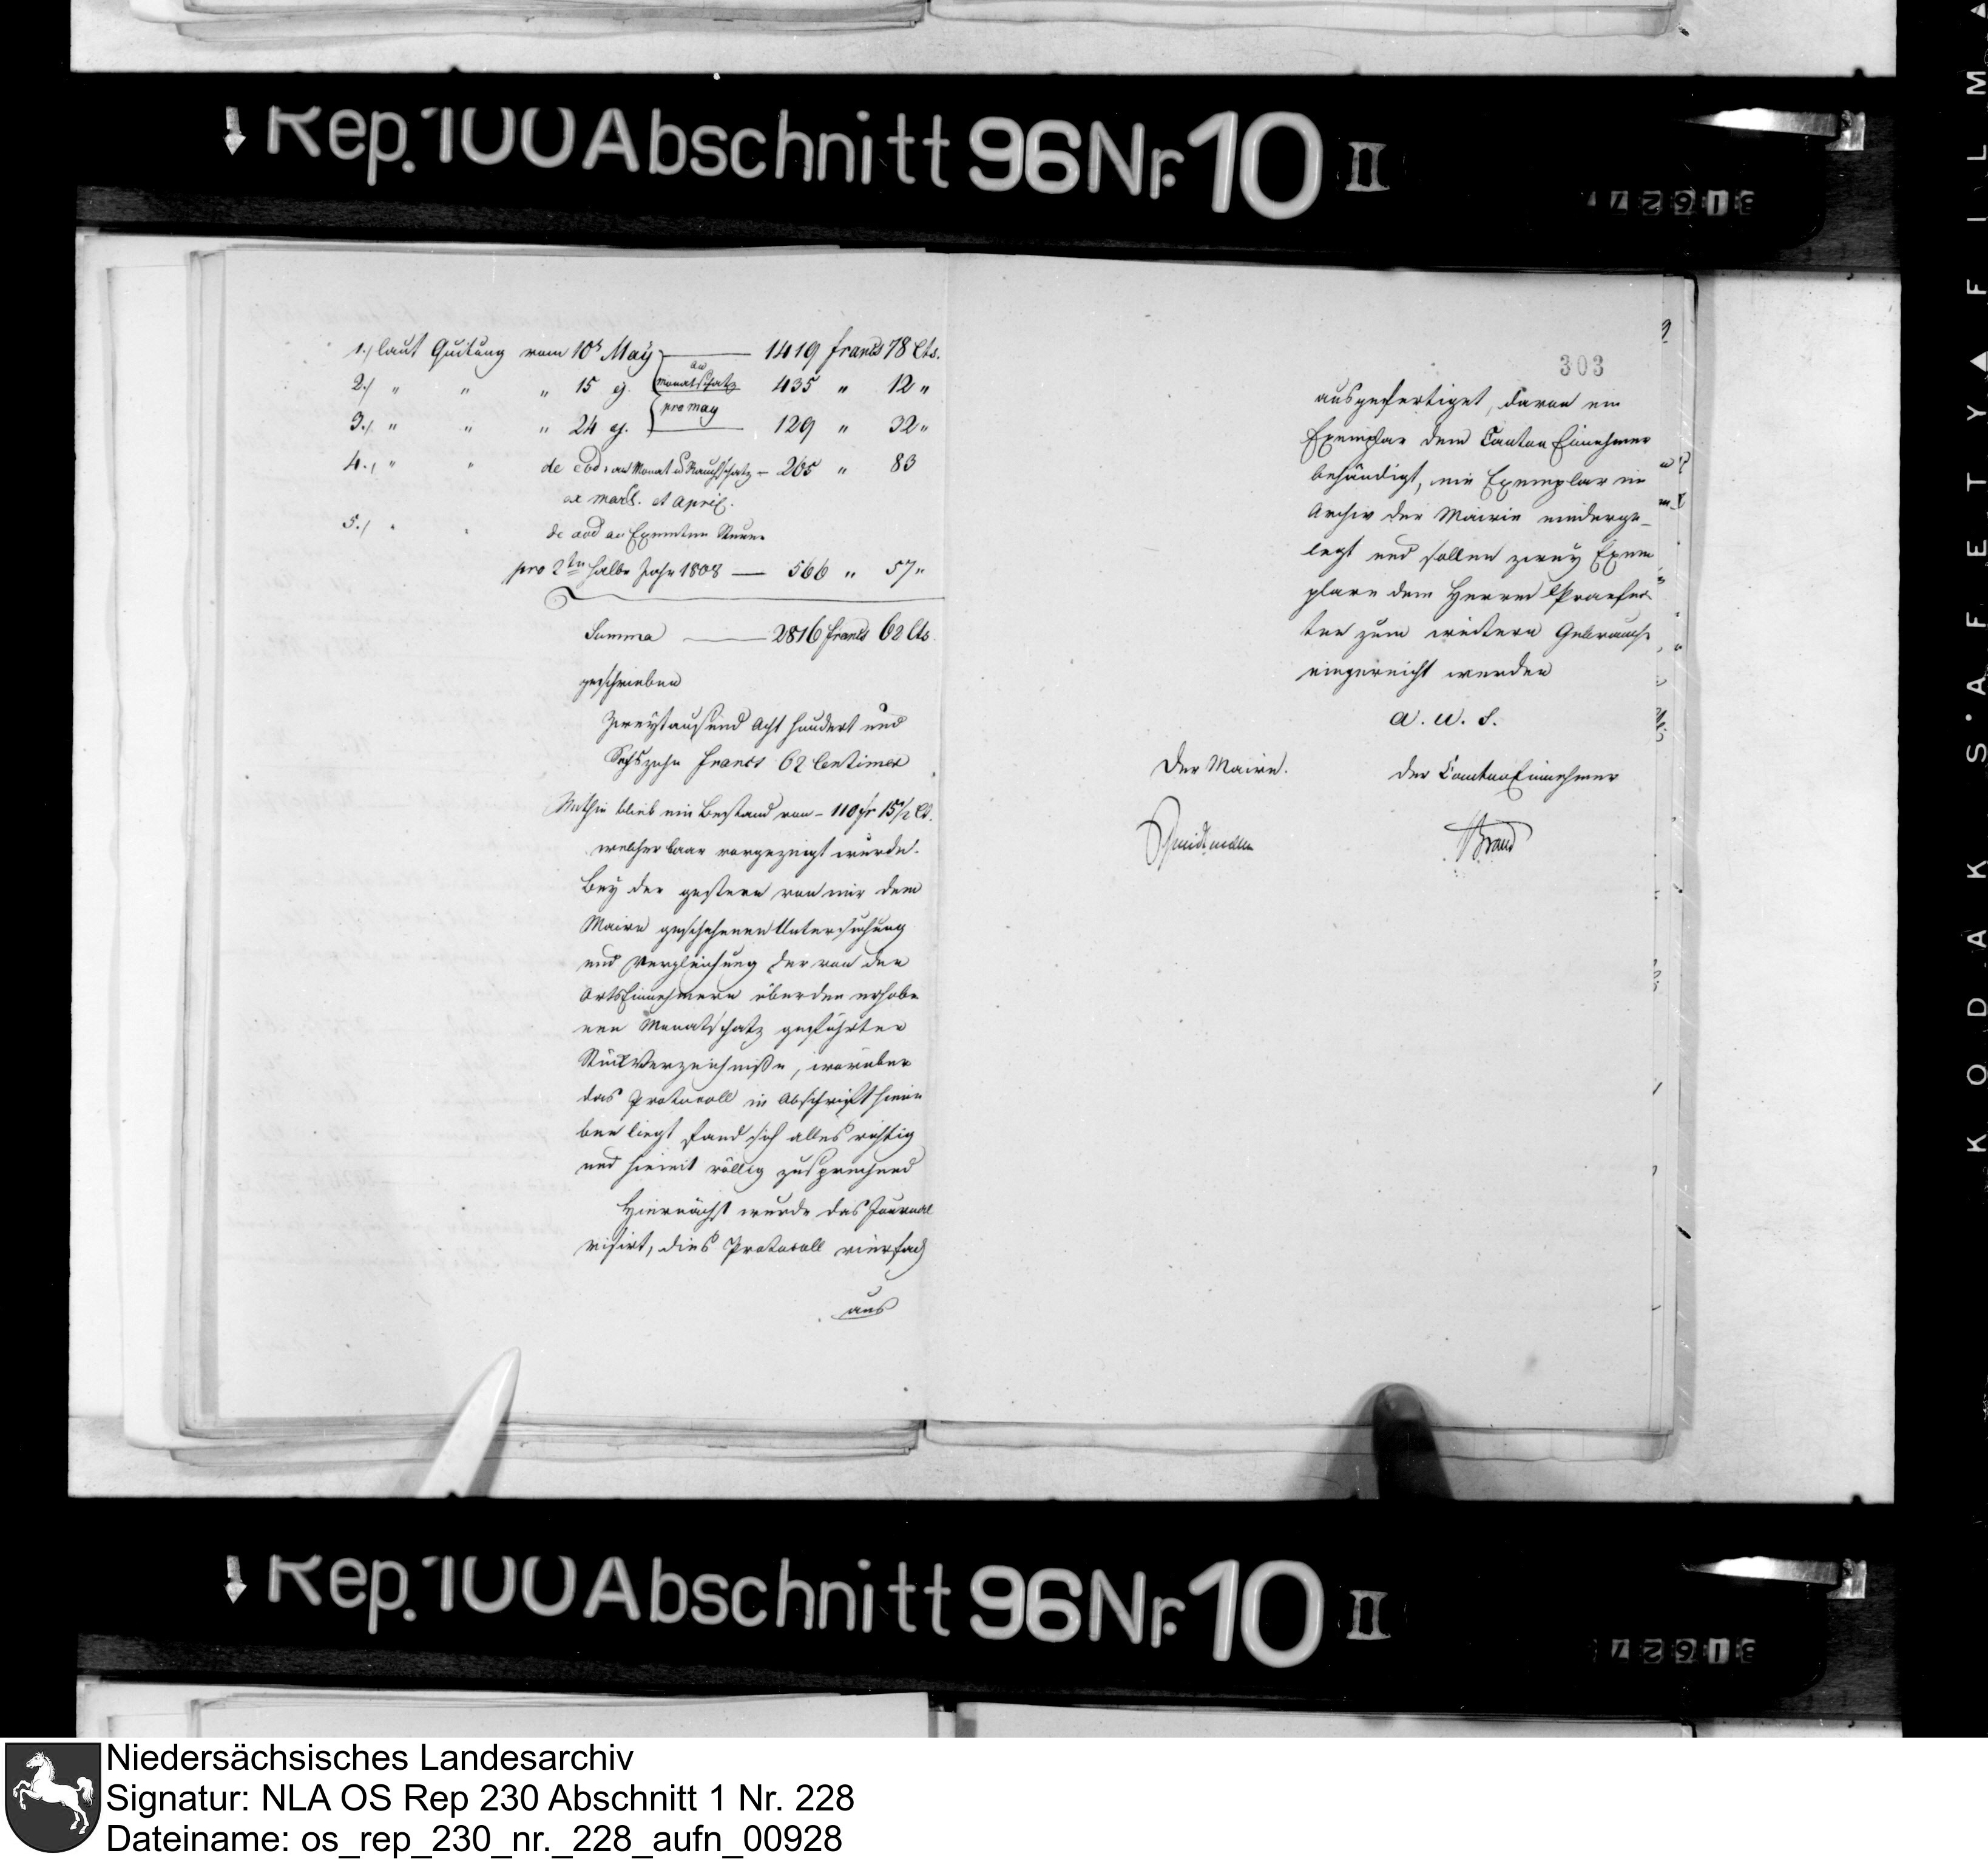 Rep. 100 Abschnitt 96 Nr. 10 II
1./ laut Quitung vom 10t May 1419 francs 78 Cts.
an
2./ " " " 15 ej. Monatschatz 435 " 12 "
pro may
3./ " " " 24 ej. 129 " 32 "
4./ " " de eod. an Monat u Rauchschatz - 265 " 83
ex mart. et April.
5./ " " de eod an Exemten Steuer
pro 2ten halbe Jahr 1808 — 566 " 57 "
Summa — 2816 francs 62 Cts.
geschrieben
Zweytausend Acht hundert und
Sechszehn francs 62 Centimes
Mithin blieb ein Bestand von - 110 fr 15 1/2 Ct.
welcher baar vorgezeigt wurde.
Bey der gestern von mir dem
Maire geschehenen Untersuchung
und Vergleichung der von den
Ortseinnehmern über den erhobe
nen Monatschatz geführten
Stück Verzeichniße, worüber
das Protocoll in Abschrift hiene
ben liegt fand sich alles richtig
und hiemit völlig zusprechend
Hiernächst wurde das Journal
visirt, dies Protocoll vierfach
aus
303
ausgefertiget, davon ein
Exemplar dem Canton Einnehmer
behändigt, ein Exemplar im
Archiv der Mairie niederge-
legt und sollen zwey Exem
plare dem Herrn Praefec
ten zum weitern Gebrauch
eingereicht werden
a. u. s.
Der Maire. der Canton Einnehmer
Brand
Rep. 100 Abschnitt 96 Nr. 10 II
KODAK · SAFETY ▲ FILM ▲
Niedersächsisches Landesarchiv
Signatur: NLA OS Rep 230 Abschnitt 1 Nr. 228
Dateiname: os_rep_230_nr._228_aufn_00928